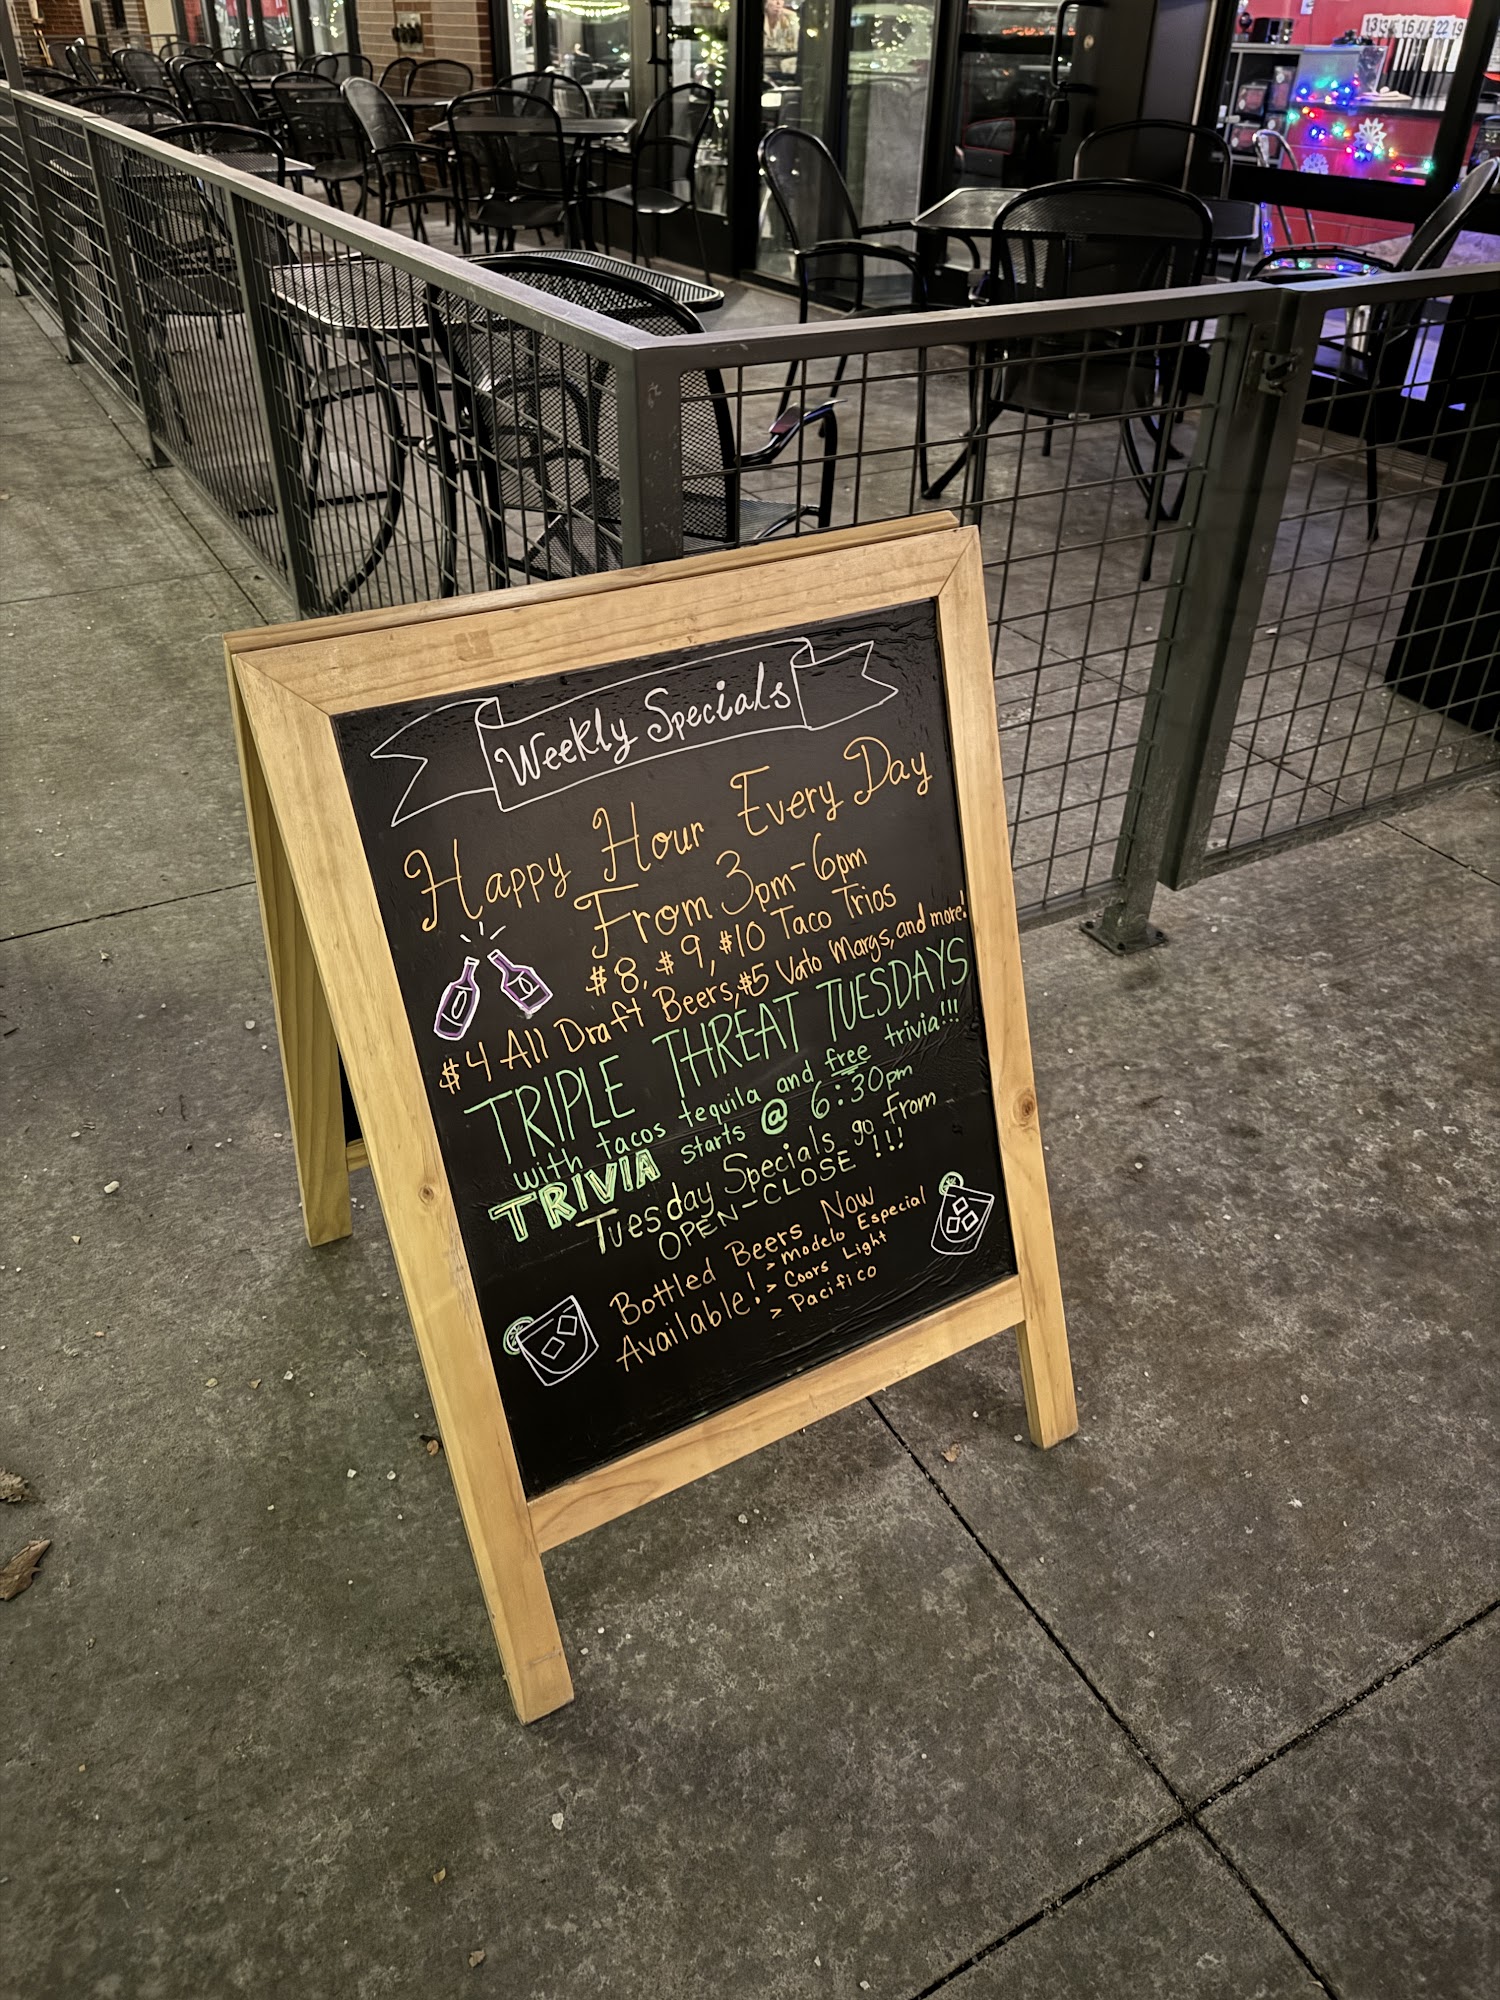 Weekly Specials
Happy Hour Every Day
From 3pm-6pm
$8, $9, $10 Taco Trios
$4 All Draft Beers, $5 Vato Margs, and more!
TRIPLE THREAT TUESDAYS
with tacos tequila and free trivia!!!
TRIVIA starts @ 6:30pm
Tuesday Specials go from
OPEN-CLOSE !!!
Bottled Beers Now
Available!
> Modelo Especial
> Coors Light
> Pacifico